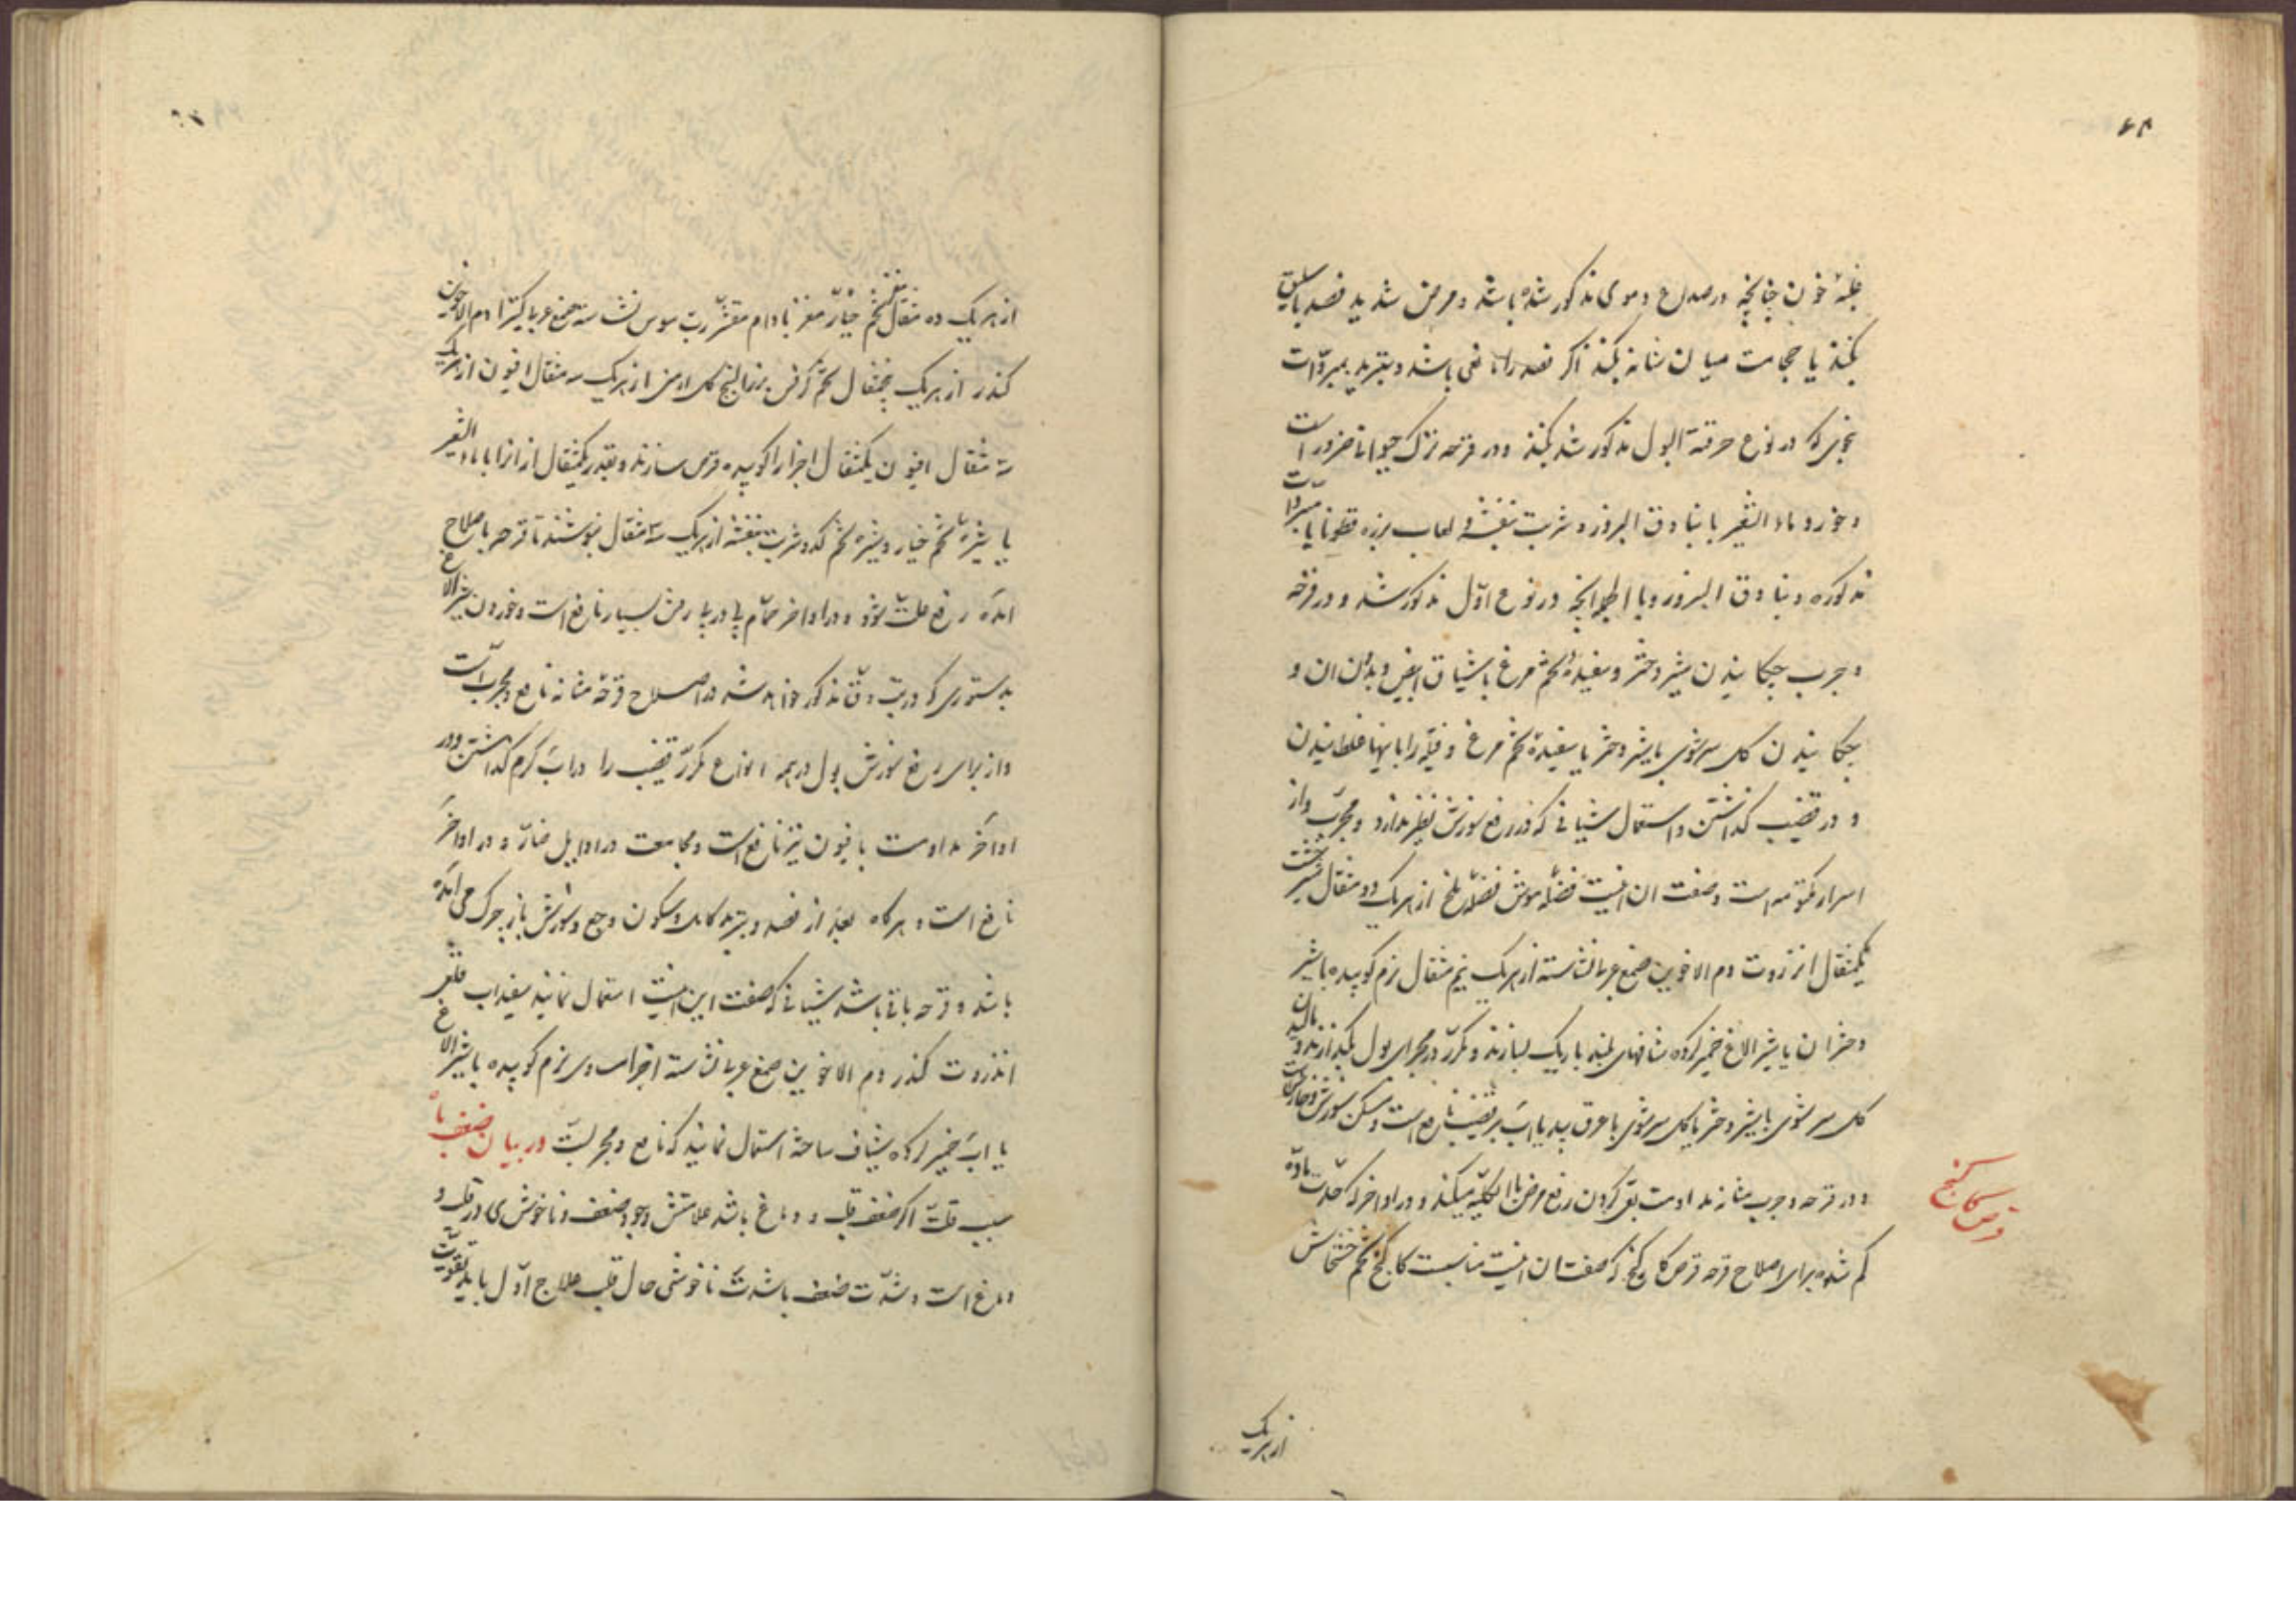 غلبهٔ خون چنانچه در صداع دموی مذکور شده باشد و مرض شدید فصد باسلیق
بکنند یا حجامت میان شانه بکنند اکر فصد را مانعی باشد و تبرید بمبردات
بنحوی که در نوع حرقة البول مذکور شد بکنند و در قرحه ترک حیوانات ضرور است
و خوردن ماء الشعیر با بنادق البزور و شربت بنفشه و لعاب بزره قطونا یا مبردات
مذکوره و بنادق البزور و با انچه در نوع اوّل مذکور شد و در قرحه
و جرب چکانیدن شیر دختر و سفیدهٔ تخم مرغ با شیاف ابیض و بدون ان و
چکانیدن کل سرشوی با شیر دختر یا سفیدهٔ تخم مرغ و فتیله را باینها غلطانیدن
و در قضیب کذاشتن و استعمال شیافی که در رفع سوزش نظیر ندارد و مجرّب و از
اسرار مکتومه است و صفت ان اینست فضلهٔ موش فضلهٔ از هر یک دو مثقال
یکمثقال انزروت دم الاخوین صمغ عربی نشاسته از هر یک نیم مثقال نرم کوبیده با شیر
دختران یا شیر الاغ خمیر کرده شافهای بلند باریک بسازند و مکرّر در مجرای بول بکذارند و مالیدن
کل سرشوی با شیر دختر یا کل سرشوی با عرق بید یا آب بر قضیب نافع است و مسکن سوزش و خارش است
و در قرحه و جرب مثانه مداومت بقی کردن رفع مرض بالکلیّه میکند و در اواخر که حدّت مادّه
کم شده برای اصلاح قرحه قرص کاکنج که صفت ان اینست مناسبست کاکنج تخم خشخاش
قرص کاکنج
از هر یک
از هر یک ده مثقال تخم خیار مغز بادام مقشّر ربّ سوس نشاسته صمغ عربی کتیرا دم الاخوین
کندر از هر یک پنجمثقال تخم کرفس بزرالبنج کل ارمنی از هر یک سه مثقال افیون از هر یک
سه مثقال افیون یکمثقال اجزا را کوبیده قرص سازند و بقدر یکمثقال از انرا با ماء الشعیر
یا شیرهٔ تخم خیار و شیرهٔ تخم کدو و شربت بنفشه از هر یک سه مثقال بنوشند تا قرحه باصلاح
امده رفع علّت شود و در اواخر حمّام پی در پی رفتن بسیار نافع است و خوردن شیر الاغ
بدستوری که در تب دقّ مذکور خواهد شد در اصلاح قرحهٔ مثانه نافع و مجرّب است
و از برای رفع سوزش بول در همه انواع مکرّر قضیب را در آب کرم کذاشتن و در
اواخر مداومت بافیون نیز نافع است و مجامعت در اوایل ضارّ و در اواخر
نافع است و هر کاه بعد از فصد و تبرید کامل و سکون وجع و سوزش باز چرک می آمده
باشد و قرحه باقی باشد شیافی که صفت این اینست استعمال نمایند سفیداب قلعی
انزروت کندر دم الاخوین صمغ عربی نشاسته اجزا مساوی نرم کوبیده با شیر الاغ
یا آب خمیر کرده شیاف ساخته استعمال نمایند که نافع و مجربست در بیان ضعف باه
سبب قلّت اکر ضعف قلب و دماغ باشد علامتش وجود ضعف و ناخوشی در قلب و
دماغ است و شدّت ضعف باشدت ناخوشی حال قلب علاج اوّل باید تقویت